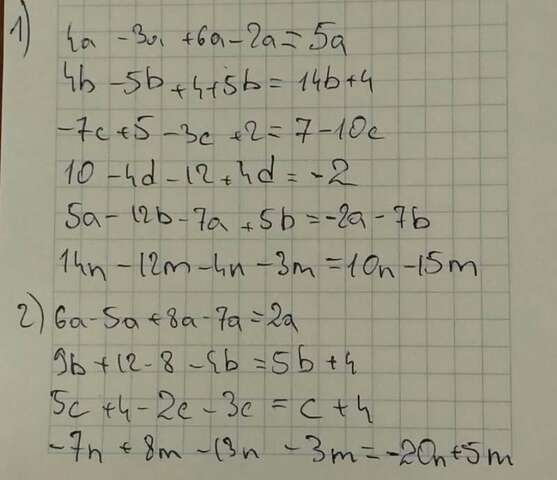 1) 4a - 3a + 6a - 2a = 5a
4b - 5b + 4 + 5b = 14b + 4
-7c + 5 - 3c + 2 = 7 - 10c
10 - 4d - 12 + 4d = -2
5a - 12b - 7a + 5b = -2a - 7b
14n - 12m - 4n - 3m = 10n - 15m
2) 6a - 5a + 8a - 7a = 2a
9b + 12 - 8 - 4b = 5b + 4
5c + 4 - 2c - 3c = c + 4
-7n + 8m - 13n - 3m = -20n + 5m